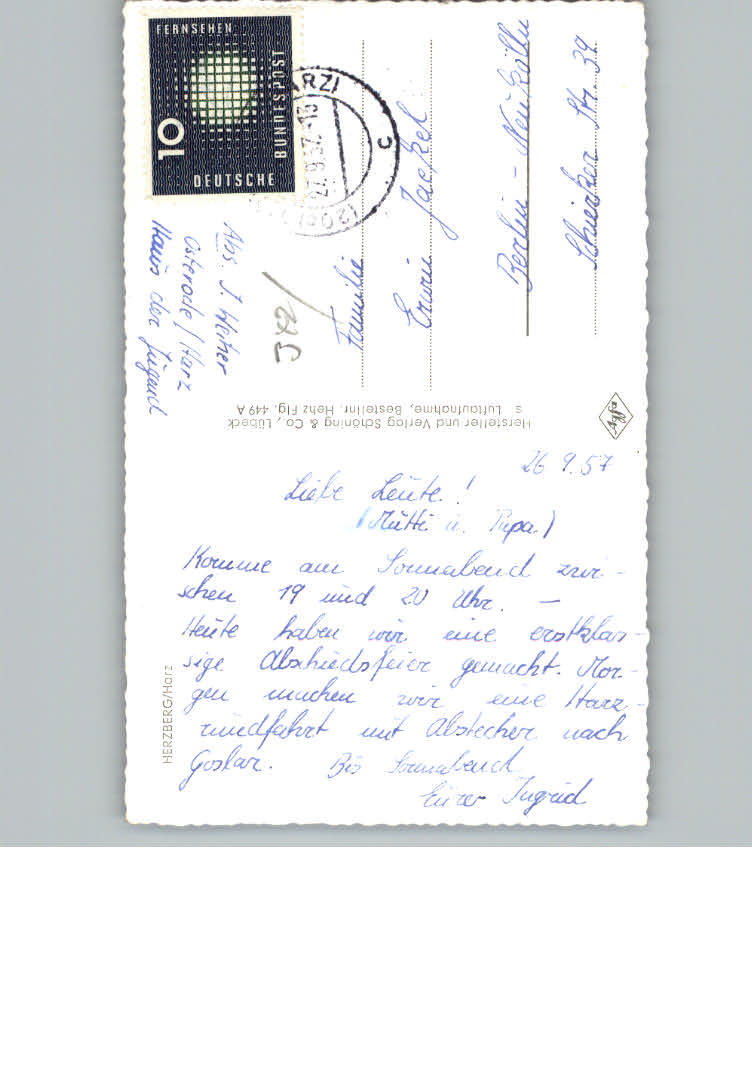 FERNSEHEN
10
DEUTSCHE
BUNDESPOST
HARZ)
27.9.57.-13
c
(20b)
Abs. J.
Osterode/Harz
Haus der Jugend
Familie
Erwin Jaekel
Berlin-Neukölln
Schierker Str. 39
Hersteller und Verlag Schöning & Co., Lübeck
s. Luftaufnahme, Bestellnr. Hehz Flg. 449 A
HERZBERG/Harz
26 9.57
Liebe Leute!
(Mutti u. Papa)
Komme am Sonnabend zwi-
schen 19 und 20 Uhr. —
Heute haben wir eine erstklas-
sige Abschiedsfeier gemacht. Mor-
gen machen wir eine Harz-
rundfahrt mit Abstecher nach
Goslar. Bis Sonnabend
Eurer Ingrid